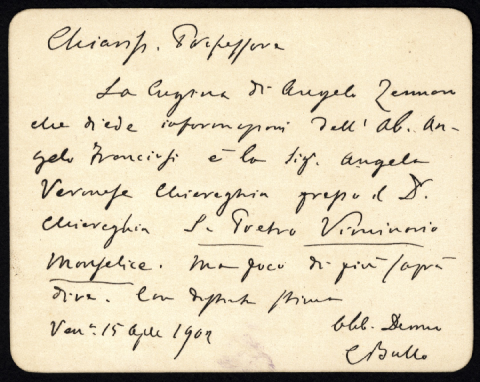 Chiariss. Professore
La Cugina di Angelo Zennari
che diede informazioni dell' Ab. An-
gelo Francissi è la Sig. Angela
Veronese Chiereghin presso il Dr.
Chiereghin S. Pietro Viminario
Monselice. Ma poco di più saprà
dire. Con distinta stima
Ven.a 15 Aple 1902
obb. Devmo
C Bullo